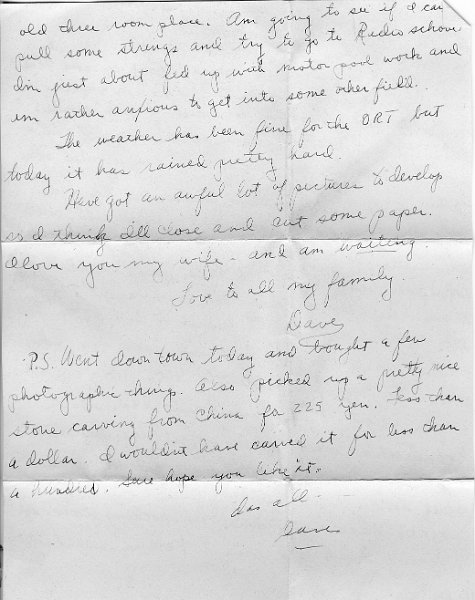 old three room place. Am going to see if I can
pull some strings and try to go to Radio school
I'm just about fed up with motor pool work and
am rather anxious to get into some other field.
The weather has been fine for the ORT but
today it has rained pretty hard.
Have got an awful lot of pictures to develop
so I think I'll close and cut some paper.
I love you my wife - and am waiting.
Love to all my family.
Dave
P.S. Went down town today and bought a few
photographic things. Also picked up a pretty nice
stone carving from China for 225 yen. Less than
a dollar. I wouldn't have carved it for less than
a hundred. Sure hope you like it.
Das all.
Dave